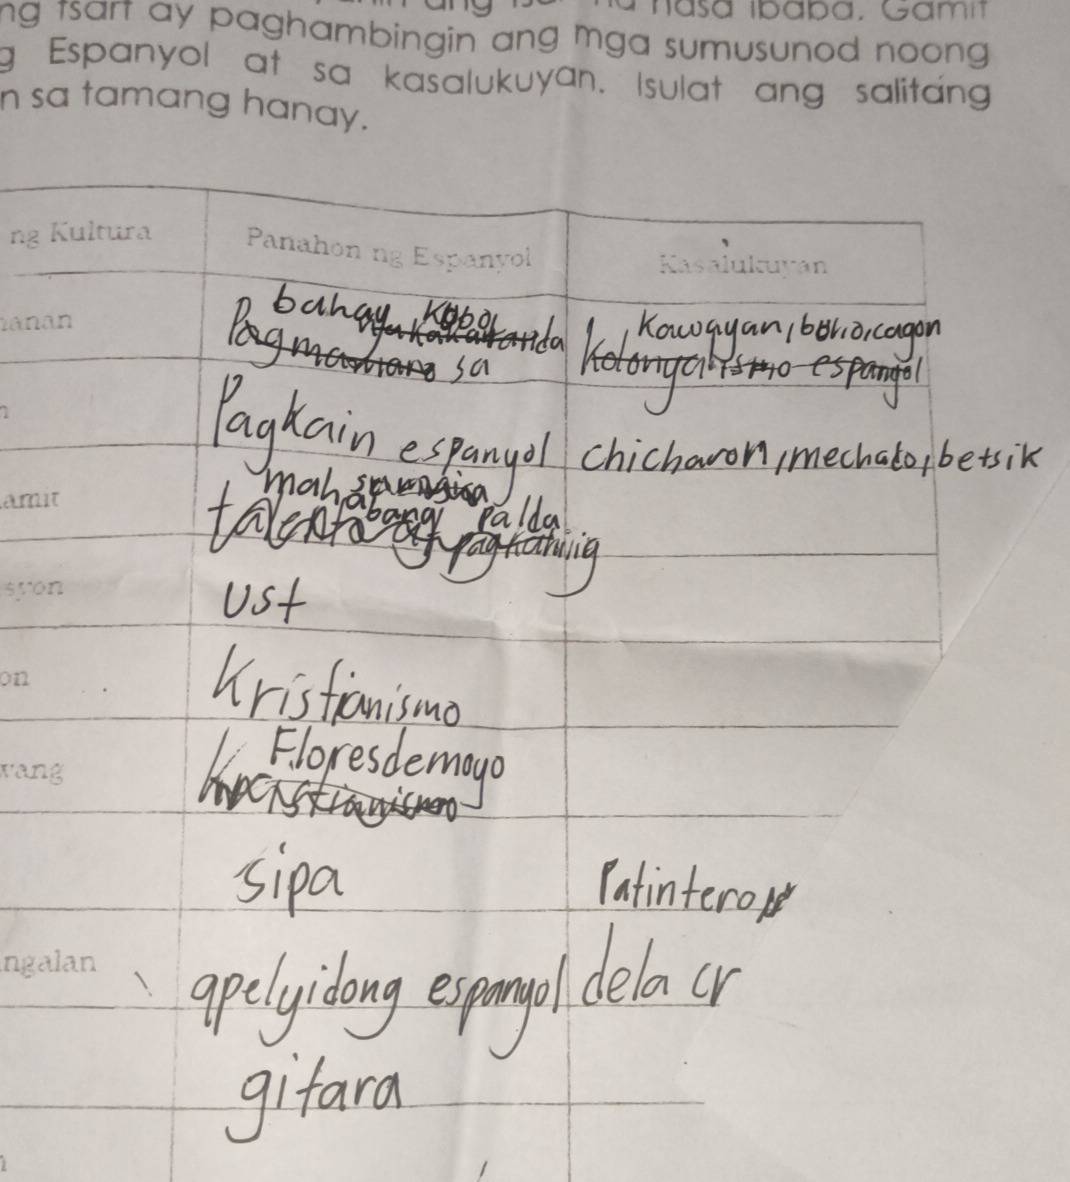 ng tsart ay paghambingin ang mga sumusunod noong
g Espanyol at sa kasalukuyan. Isulat ang salitang
n sa tamang hanay.
ng Kultura Panahon ng Espanyol Kasalukuyan
anan bahay kubo Kawayan, boho, cogon
Pag sa kolonyalismo espanyol
Pagkain espanyol chicharon, mechato, betsik
amit mahabang palda
talento at
syon ust
on Kristianismo
wang Floresdemayo
Kristianismo
sipa Patintero
ngalan apelyidong espanyol dela cr
gitara